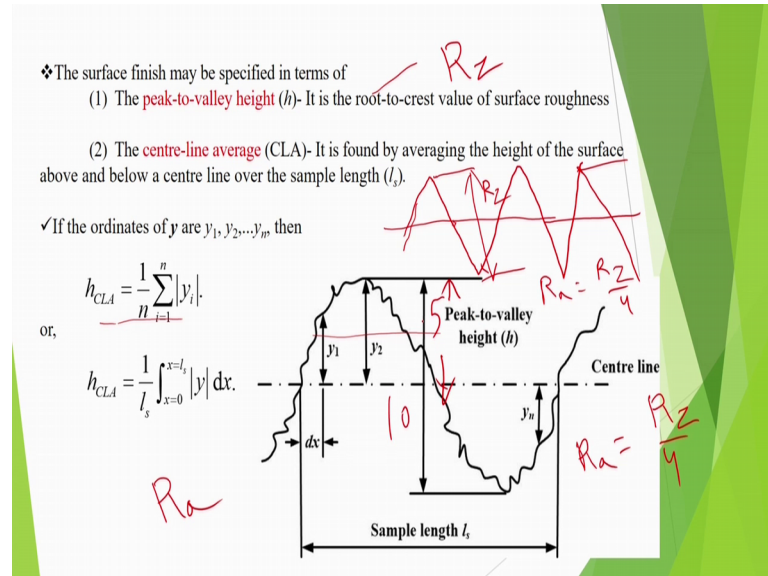 ❖The surface finish may be specified in terms of
Rz
(1) The peak-to-valley height (h)- It is the root-to-crest value of surface roughness
(2) The centre-line average (CLA)- It is found by averaging the height of the surface
above and below a centre line over the sample length (lₛ).
Rz
✓If the ordinates of y are y₁, y₂,...yₙ, then
h_CLA = 1/n ∑_{i=1}^{n} |yᵢ|.
Ra = Rz/4
or,
5
Peak-to-valley
height (h)
y₁
y₂
Centre line
h_CLA = 1/lₛ ∫_{x=0}^{x=lₛ} |y| dx.
10
yₙ
Ra = Rz/4
dx
Ra
Sample length lₛ